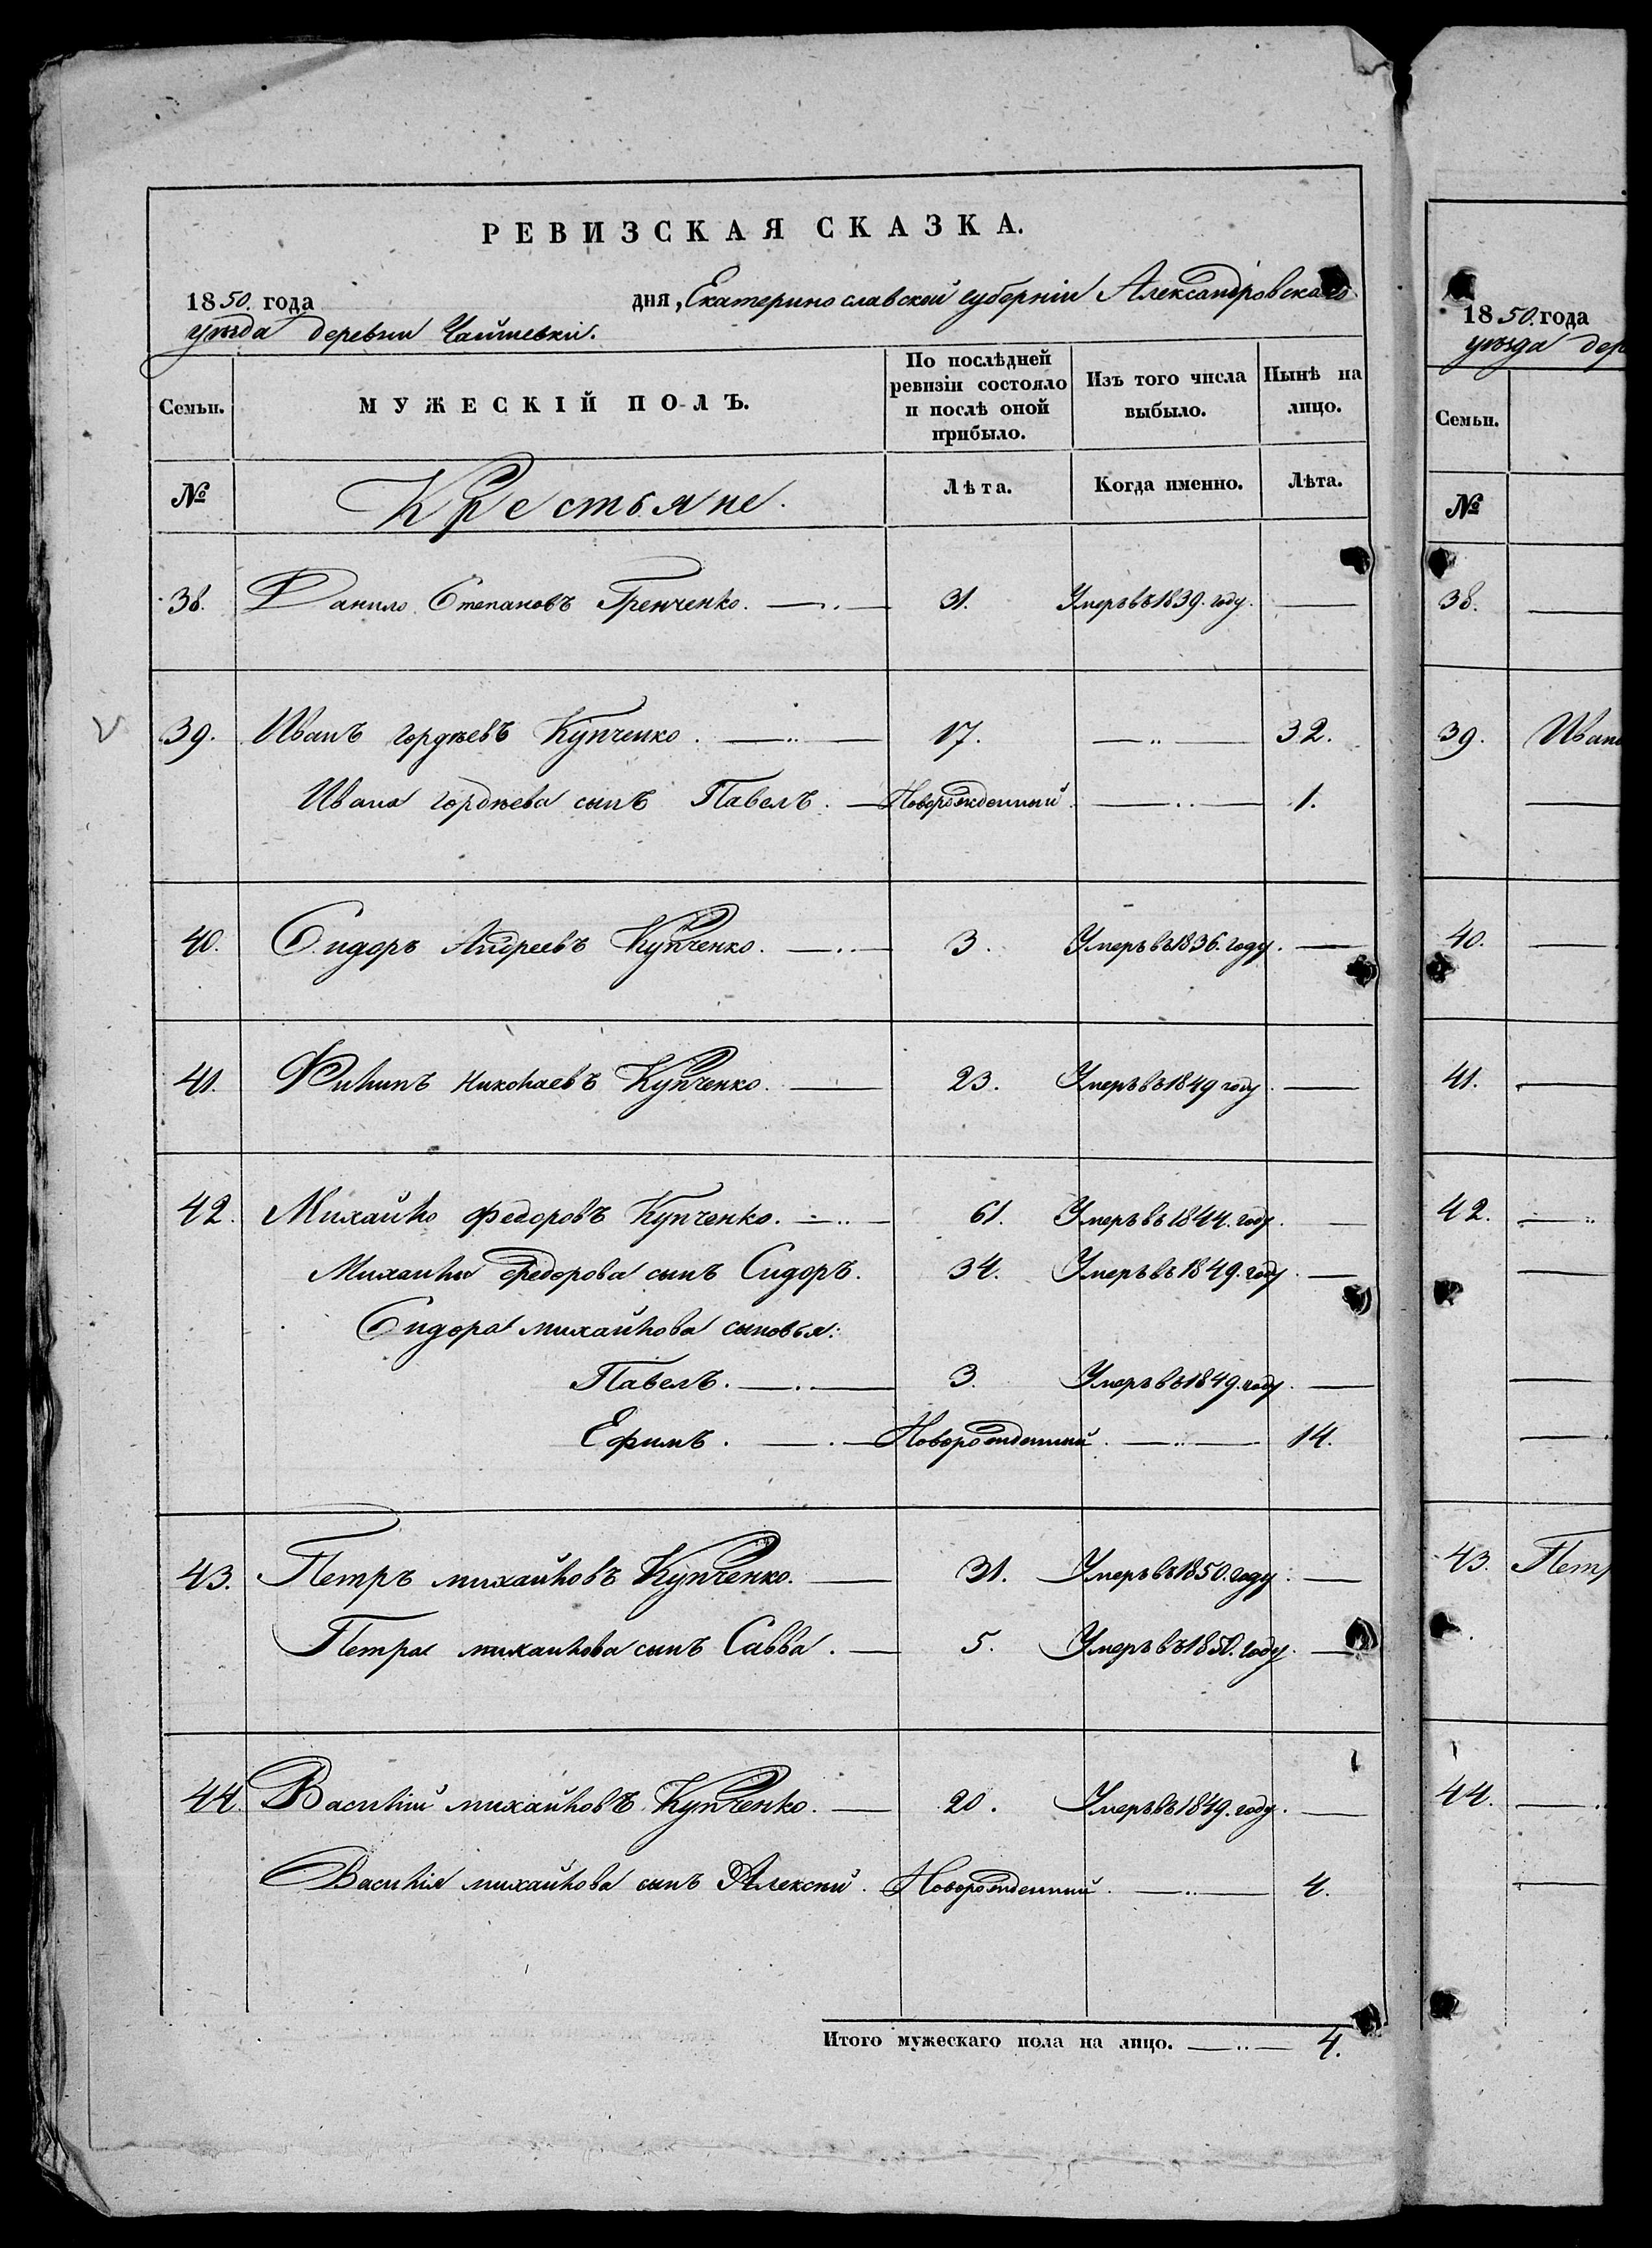 РЕВИЗСКАЯ СКАЗКА.
1850. года дня, Екатеринославской губерніи Александровскаго
уѣзда деревни
Семьи. МУЖЕСКІЙ ПОЛЪ. По послѣдней ревизіи состояло и послѣ оной прибыло. Изъ того числа выбыло. Нынѣ на лицо.
№ Крестьяне. Лѣта. Когда именно. Лѣта.
38. Данило Степановъ Гренченко. 31. Умеръ въ 1839. году.
39. Иванъ Гордѣевъ Купченко. 17. 32.
Ивана Гордѣева сынъ Павелъ. Новорожденный 1.
40. Сидоръ Андреевъ Купченко. 3. Умеръ въ 1836. году.
41. Филипъ Николаевъ Купченко. 23. Умеръ въ 1849 году.
42. Михайло Федоровъ Купченко. 61. Умеръ въ 1844. году.
Михайлы Федорова сынъ Сидоръ. 34. Умеръ въ 1849. году.
Сидора михайлова сыновья:
Павелъ. 3. Умеръ въ 1849. году.
Ефимъ. Новорожденный. 14.
43. Петръ михайловъ Купченко. 31. Умеръ въ 1850. году.
Петра михайлова сынъ Савва. 5. Умеръ въ 1850. году.
44. Василій михайловъ Купченко. 20. Умеръ въ 1849. году.
Василія михайлова сынъ Алексѣй. Новорожденный. 4.
Итого мужескаго пола на лицо. 4.
1850. года
уѣзда дер
Семьи.
№
38.
39. Иван
40.
41.
42.
43. Петр
44.